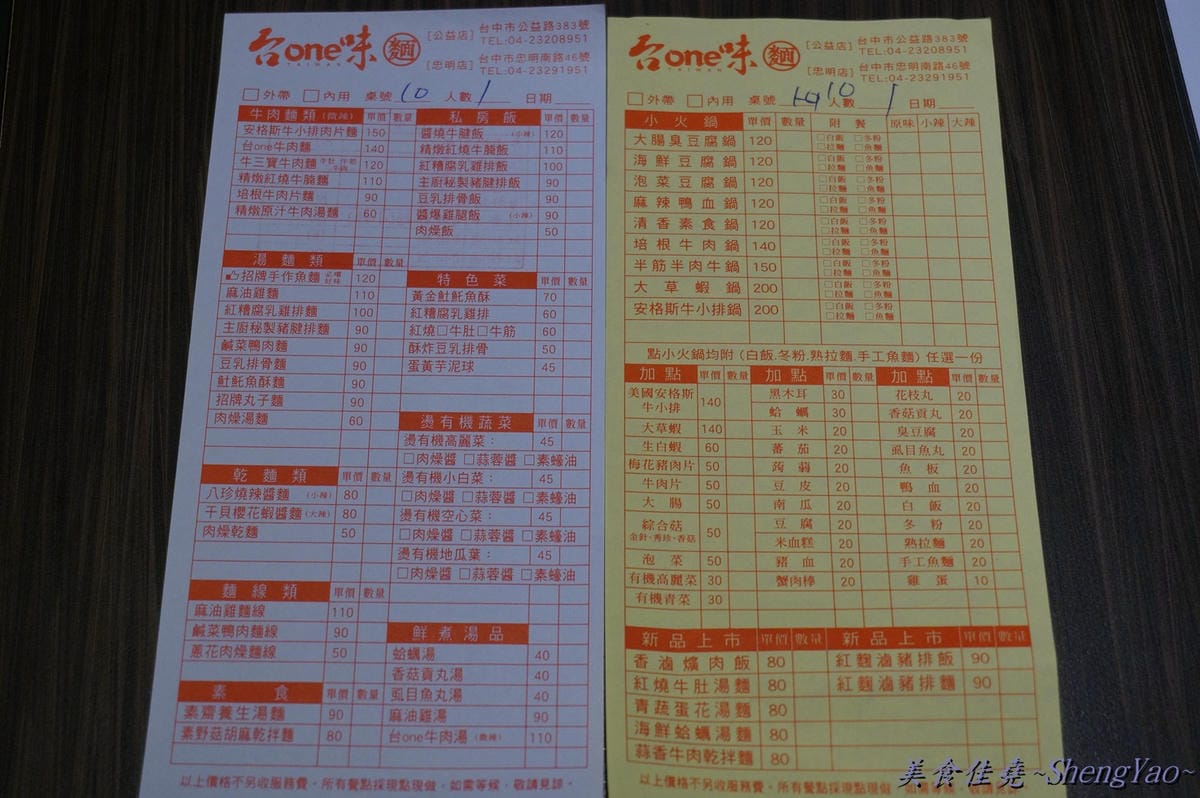 台one味 麵
TAIWAN
[公益店] 台中市公益路383號
TEL:04-23208951
[忠明店] 台中市忠明南路46號
TEL:04-23291951
□外帶 □內用 桌號 10 人數 1 日期
牛肉麵類(微辣) 單價 數量
安格斯牛小排肉片麵 150
台one牛肉麵 140
牛三寶牛肉麵 120
精燉紅燒牛腩麵 110
培根牛肉片麵 90
精燉原汁牛肉湯麵 60
湯麵類 單價 數量
招牌手作魚麵 120
麻油雞麵 110
紅糟腐乳雞排麵 100
主廚秘製豬腱排麵 90
鹹菜鴨肉麵 90
豆乳排骨麵 90
魠魠魚酥麵 90
招牌丸子麵 90
肉燥湯麵 60
乾麵類 單價 數量
八珍燒辣醬麵 (小辣) 80
干貝櫻花蝦醬麵 (大辣) 80
肉燥乾麵 50
麵線類 單價 數量
麻油雞麵線 110
鹹菜鴨肉麵線 90
蔥花肉燥麵線 50
素食 單價 數量
素齋養生湯麵 90
素野菇胡麻乾拌麵 80
私房飯 單價 數量
醬燒牛腱飯 (小辣) 120
精燉紅燒牛腩飯 110
紅糟腐乳雞排飯 100
主廚秘製豬腱排飯 90
豆乳排骨飯 90
醬爆雞腿飯 (小辣) 90
肉燥飯 50
特色菜 單價 數量
黃金魠魠魚酥 70
紅糟腐乳雞排 60
紅燒□牛肚□牛筋 60
酥炸豆乳排骨 50
蛋黃芋泥球 45
燙有機蔬菜 單價 數量
燙有機高麗菜: 45
□肉燥醬 □蒜蓉醬 □素蠔油
燙有機小白菜: 45
□肉燥醬 □蒜蓉醬 □素蠔油
燙有機空心菜: 45
□肉燥醬 □蒜蓉醬 □素蠔油
燙有機地瓜葉: 45
□肉燥醬 □蒜蓉醬 □素蠔油
鮮煮湯品 單價 數量
蛤蠣湯 40
香菇貢丸湯 40
虱目魚丸湯 40
麻油雞湯 90
台one牛肉湯 (微辣) 110
以上價格不另收服務費。所有餐點採現點現做,如需等候,敬請見諒。
台one味 麵
TAIWAN
[公益店] 台中市公益路383號
TEL:04-23208951
[忠明店] 台中市忠明南路46號
TEL:04-23291951
□外帶 □內用 桌號 10 人數 1 日期
小火鍋 單價 數量 附餐 原味 小辣 大辣
大腸臭豆腐鍋 120 □白飯 □冬粉 □拉麵 □魚麵
海鮮豆腐鍋 120 □白飯 □冬粉 □拉麵 □魚麵
泡菜豆腐鍋 120 □白飯 □冬粉 □拉麵 □魚麵
麻辣鴨血鍋 120 □白飯 □冬粉 □拉麵 □魚麵
清香素食鍋 120 □白飯 □冬粉 □拉麵 □魚麵
培根牛肉鍋 140 □白飯 □冬粉 □拉麵 □魚麵
半筋半肉牛鍋 150 □白飯 □冬粉 □拉麵 □魚麵
大草蝦鍋 200 □白飯 □冬粉 □拉麵 □魚麵
安格斯牛小排鍋 200 □白飯 □冬粉 □拉麵 □魚麵
點小火鍋均附(白飯.冬粉.熟拉麵.手工魚麵)任選一份
加點 單價 數量
美國安格斯牛小排 140
大草蝦 140
生白蝦 60
梅花豬肉片 50
牛肉片 50
大腸 50
綜合菇 金針·秀珍·香菇 50
泡菜 50
有機高麗菜 30
有機青菜 30
加點 單價 數量
黑木耳 30
蛤蠣 30
玉米 20
蕃茄 20
蒟蒻 20
豆皮 20
南瓜 20
豆腐 20
米血糕 20
豬血 20
蟹肉棒 20
加點 單價 數量
花枝丸 20
香菇貢丸 20
臭豆腐 20
虱目魚丸 20
魚板 20
鴨血 20
白飯 20
冬粉 20
熟拉麵 20
手工魚麵 20
雞蛋 10
新品上市 單價 數量
香滷爌肉飯 80
紅燒牛肚湯麵 80
青蔬蛋花湯麵 80
海鮮蛤蠣湯麵 80
蒜香牛肉乾拌麵 80
新品上市 單價 數量
紅麴滷豬排飯 90
紅麴滷豬排麵 90
以上價格不另收服務費。所有餐點採現點現做,如需等候,敬請見諒。
美食佳堯~ShengYao~